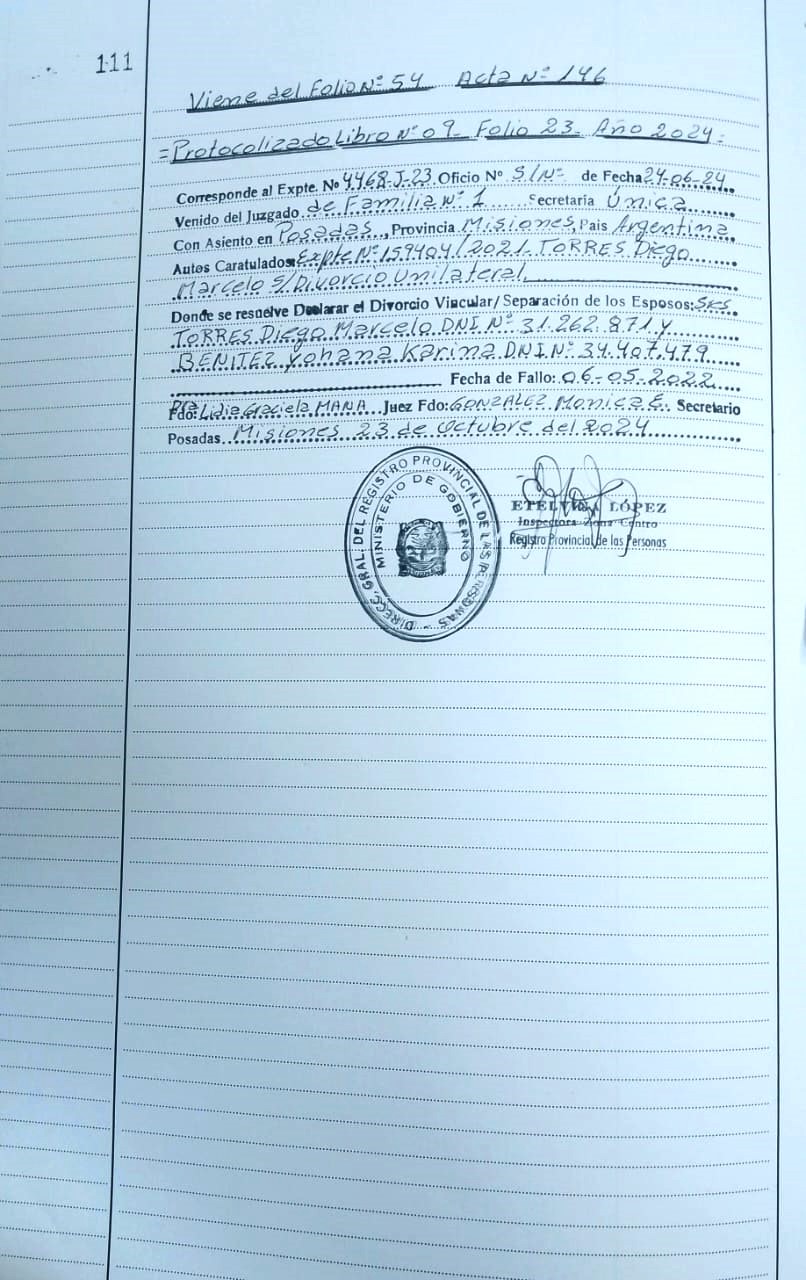 111
Viene del Folio Nº 54 Acta Nº 146
= Protocolizado Libro Nº 09 - Folio 23 - Año 2024 =
Corresponde al Expte. Nº 4468-J-23 Oficio Nº S/Nº de Fecha 24-06-24
Venido del Juzgado de Familia Nº 1 Secretaría Única
Con Asiento en Posadas, Provincia Misiones, Pais Argentina
Autos Caratulados Expte Nº 159404/2021. TORRES Diego
Marcelo S/Divorcio Unilateral
Donde se resuelve Declarar el Divorcio Vincular/Separación de los Esposos: SRS
TORRES Diego Marcelo DNI Nº 31.262.871 y
BENITEZ Yohana Karina DNI Nº 34.407.479
Fecha de Fallo: 06-05-2022
Fdo: Dra Lidia Graciela MANA Juez Fdo: GONZALEZ Monica E. Secretario
Posadas Misiones 23 de Octubre del 2024
DIREC. GRAL. DEL REGISTRO PROVINCIAL DE LAS PERSONAS -
MINISTERIO DE GOBIERNO
LÓPEZ
Inspectora Zona Centro
Registro Provincial de las Personas